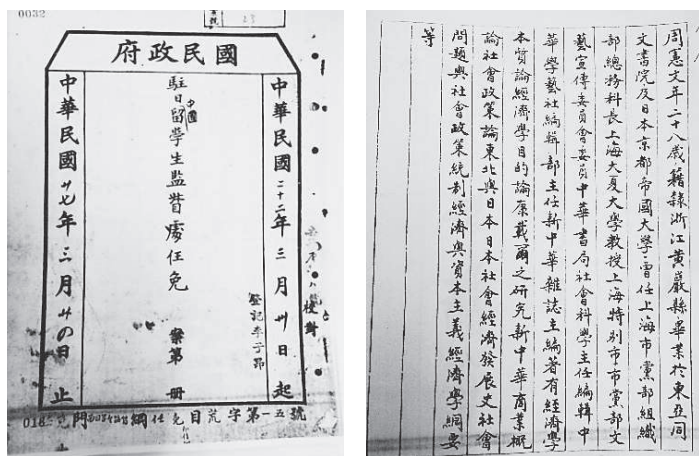 0032
23
國民政府
中華民國二十二年三月卅日起
校對
登記李子昂
駐日中國留學生監督處任免 案第 冊
中華民國廿七年三月 日止
門 綱任免目荒字第一五號
周憲文年二十八歲籍隸浙江黃巖縣畢業於東亞同
文書院及日本京都帝國大學曾任上海市黨部組織
部總務科長上海大夏大學教授上海特別市市黨部文
藝宣傳委員會委員中華書局社會科學主任編輯中
華學藝社編輯部主任新中華雜誌主編著有經濟學
本質論經濟學目的論康戴爾之研究新中華商業概
論社會政策論東北與日本日本社會經濟發展史社會
問題與社會政策統制經濟與資本主義經濟學綱要
等